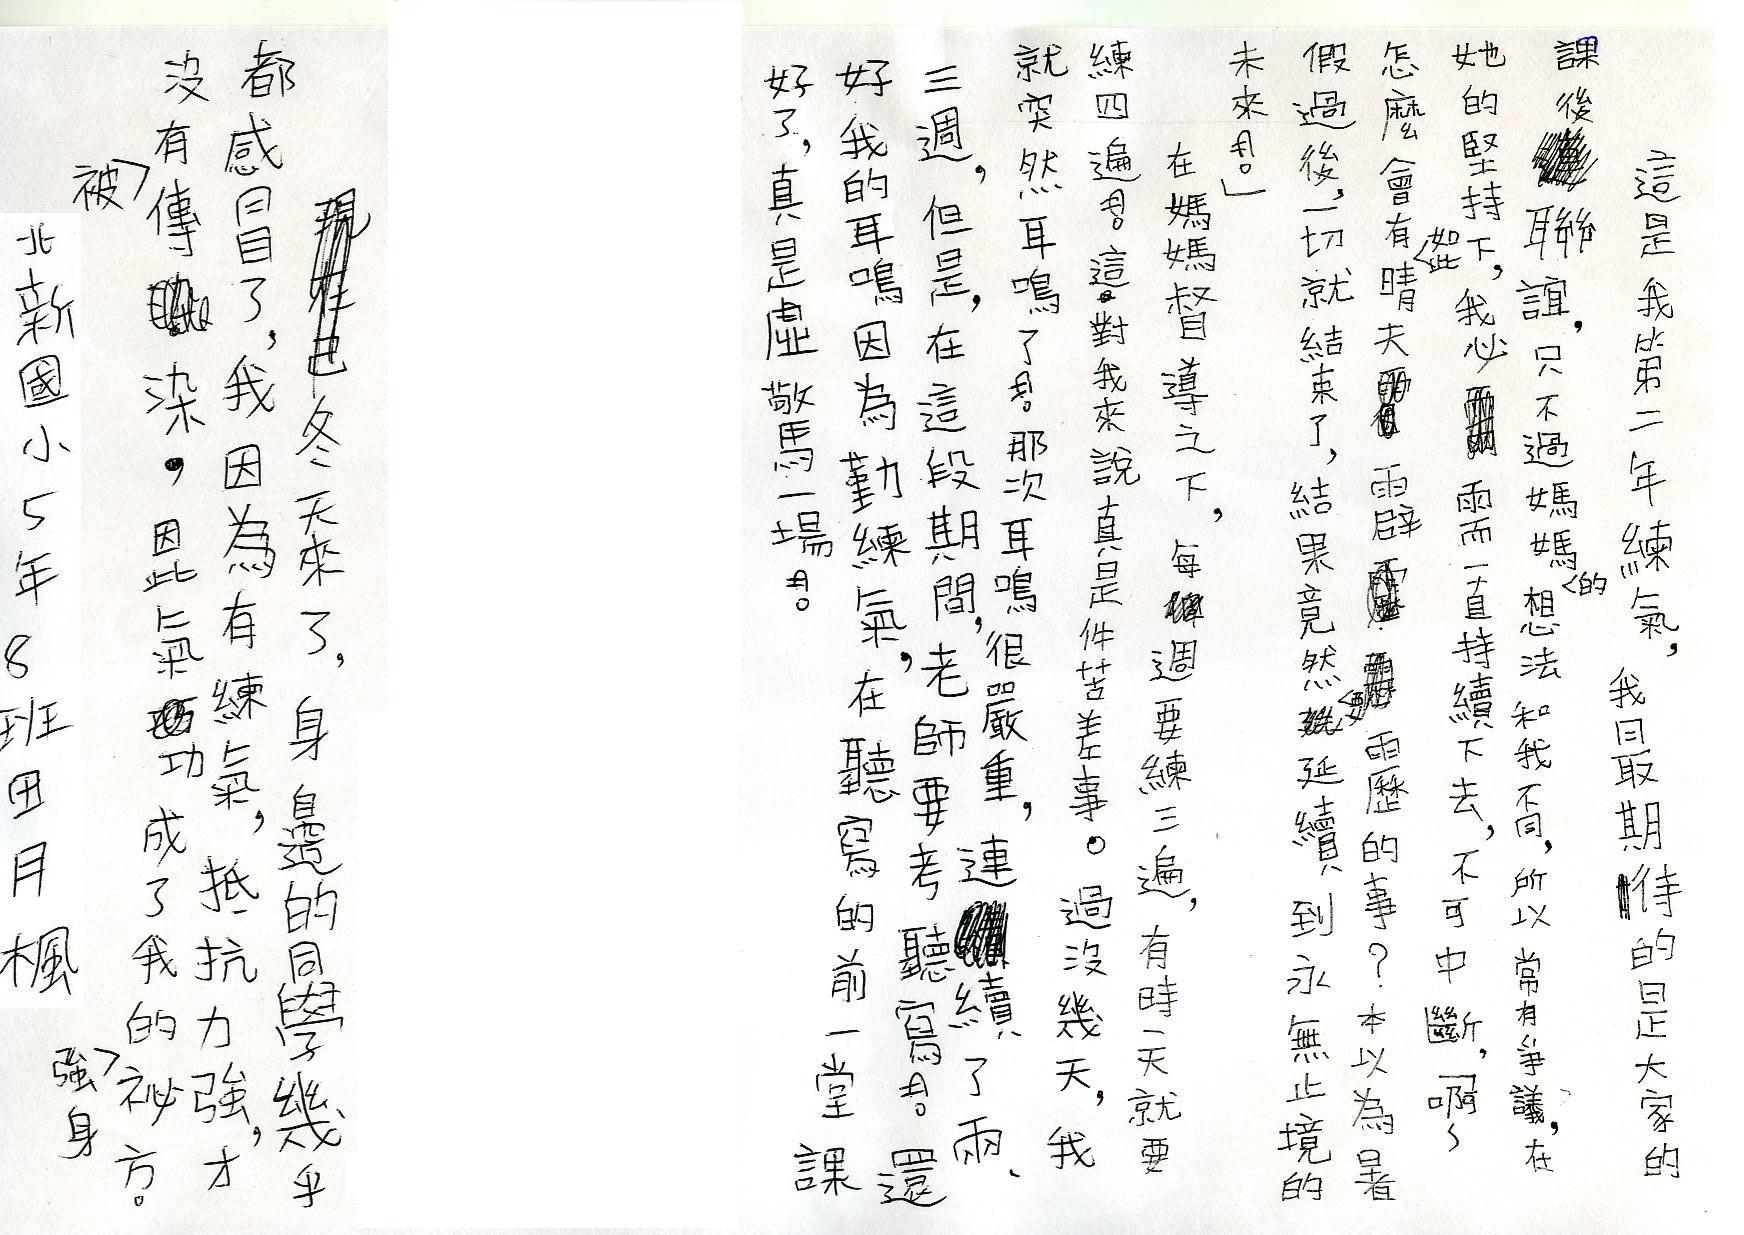 這是我第二年練氣，我最期待的是大家的
課後聯誼，只不過媽媽的想法和我不同，所以常有爭議，在
她的堅持下，我必需一直持續下去，不可中斷，「啊～
怎麼會有如此晴天霹靂的事？本以為暑
假過後，一切就結束了，結果竟然要延續到永無止境的
未來……。」
在媽媽督導之下，每週要練三遍，有時一天就要
練四遍……。這對我來說真是件苦差事。過沒幾天，我
就突然耳鳴了……。那次耳鳴很嚴重，連續了兩、
三週，但是，在這段期間，老師要考聽寫……。還
好我的耳鳴因為勤練氣，在聽寫的前一堂課
好了，真是虛驚一場……。
冬天來了，身邊的同學幾乎
都感冒了，我因為有練氣，抵抗力強，才
沒有被傳染，因此氣功成了我的強身祕方。
北新國小5年8班田月楓